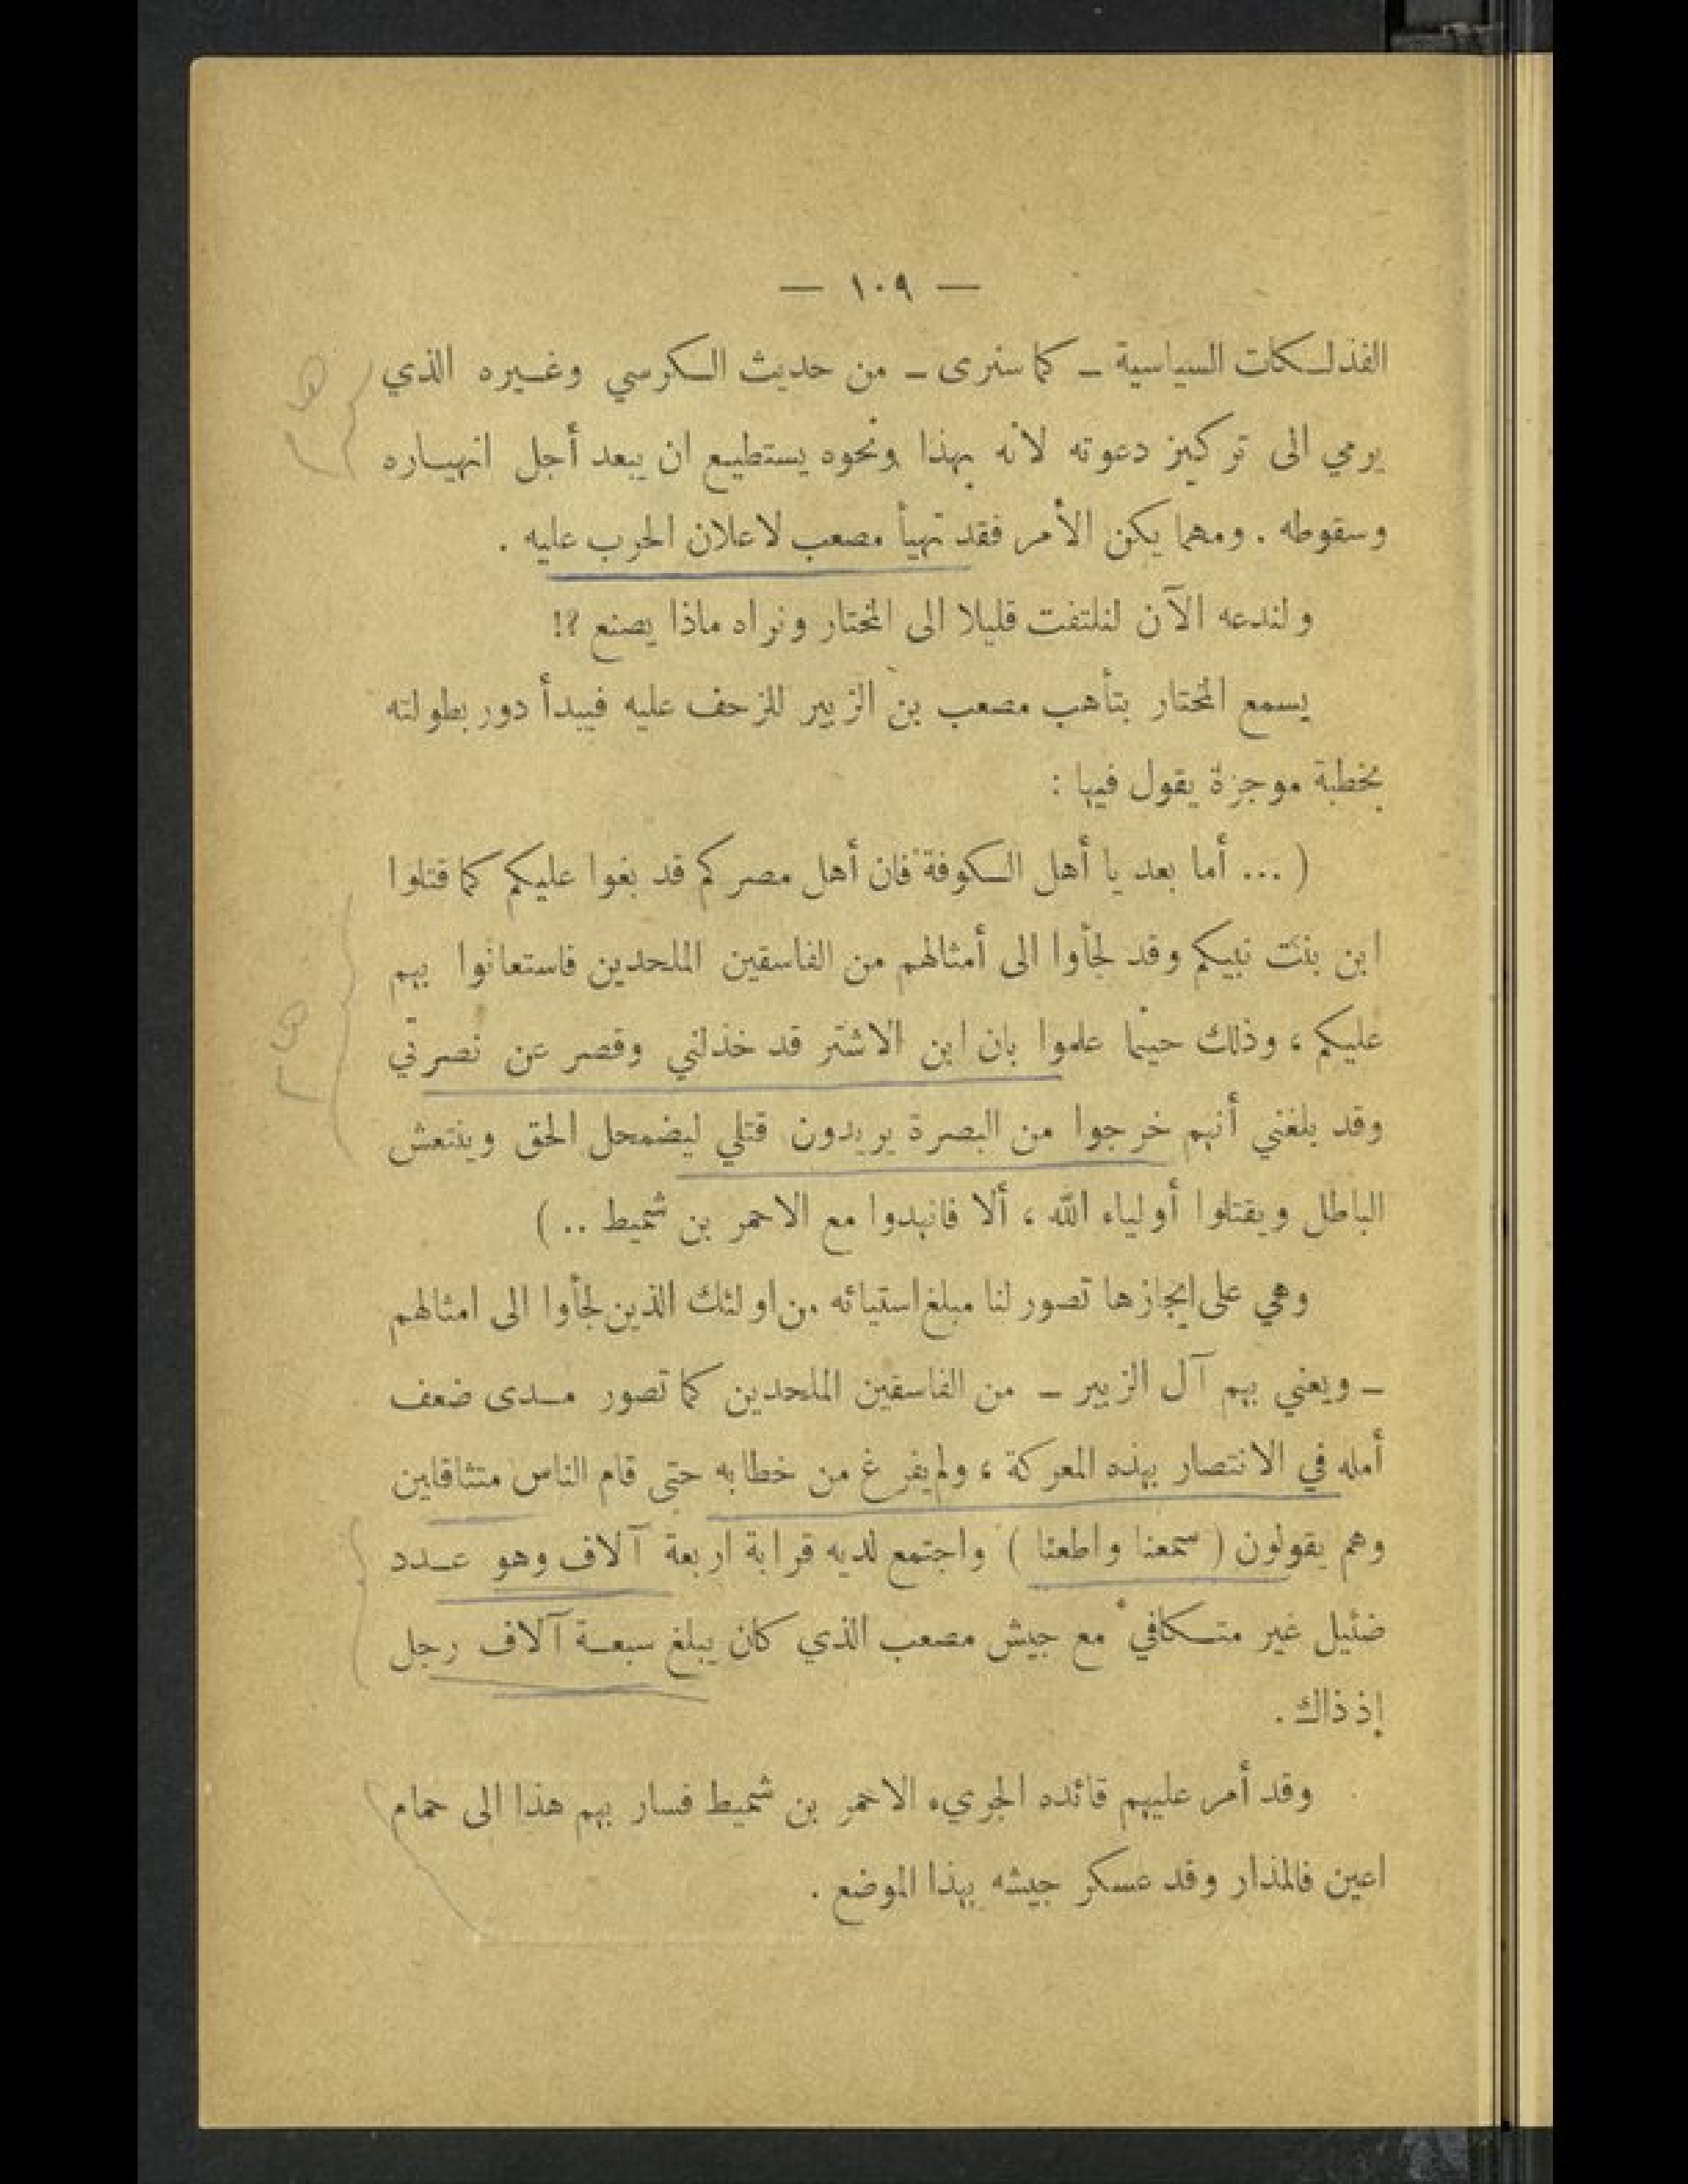 — ١٠٩ —
الفذلكات السياسية – كما سنرى – من حديث الكرسي وغيره الذي
يرمي الى تركيز دعوته لانه بهذا ونحوه يستطيع ان يبعد أجل انهياره
وسقوطه . ومهما يكن الأمر فقد تهيأ مصعب لاعلان الحرب عليه .
ولندعه الآن لنلتفت قليلا الى المختار ونراه ماذا يصنع ؟!
يسمع المختار بتأهب مصعب بن الزبير للزحف عليه فيبدأ دور بطولته
بخطبة موجزة يقول فيها :
( ... أما بعد يا أهل الكوفة فان أهل مصركم قد بغوا عليكم كما قتلوا
ابن بنت نبيكم وقد لجأوا الى أمثالهم من الفاسقين الملحدين فاستعانوا بهم
عليكم ، وذلك حينما علموا بان ابن الاشتر قد خذلني وقصر عن نصرتي
وقد بلغني أنهم خرجوا من البصرة يريدون قتلي ليضمحل الحق وينتعش
الباطل ويقتلوا أولياء الله ، ألا فانهدوا مع الاحمر بن شميط .. )
وهي على ايجازها تصور لنا مبلغ استيائه من اولئك الذين لجأوا الى امثالهم
– ويعني بهم آل الزبير – من الفاسقين الملحدين كما تصور مدى ضعف
أمله في الانتصار بهذه المعركة ، ولم يفرغ من خطابه حتى قام الناس متثاقلين
وهم يقولون ( سمعنا واطعنا ) واجتمع لديه قرابة اربعة آلاف وهو عدد
ضئيل غير متكافيء مع جيش مصعب الذي كان يبلغ سبعة آلاف رجل
إذ ذاك .
وقد أمر عليهم قائده الجريء الاحمر بن شميط فسار بهم هذا الى حمام
اعين فالمذار وقد عسكر جيشه بهذا الموضع .